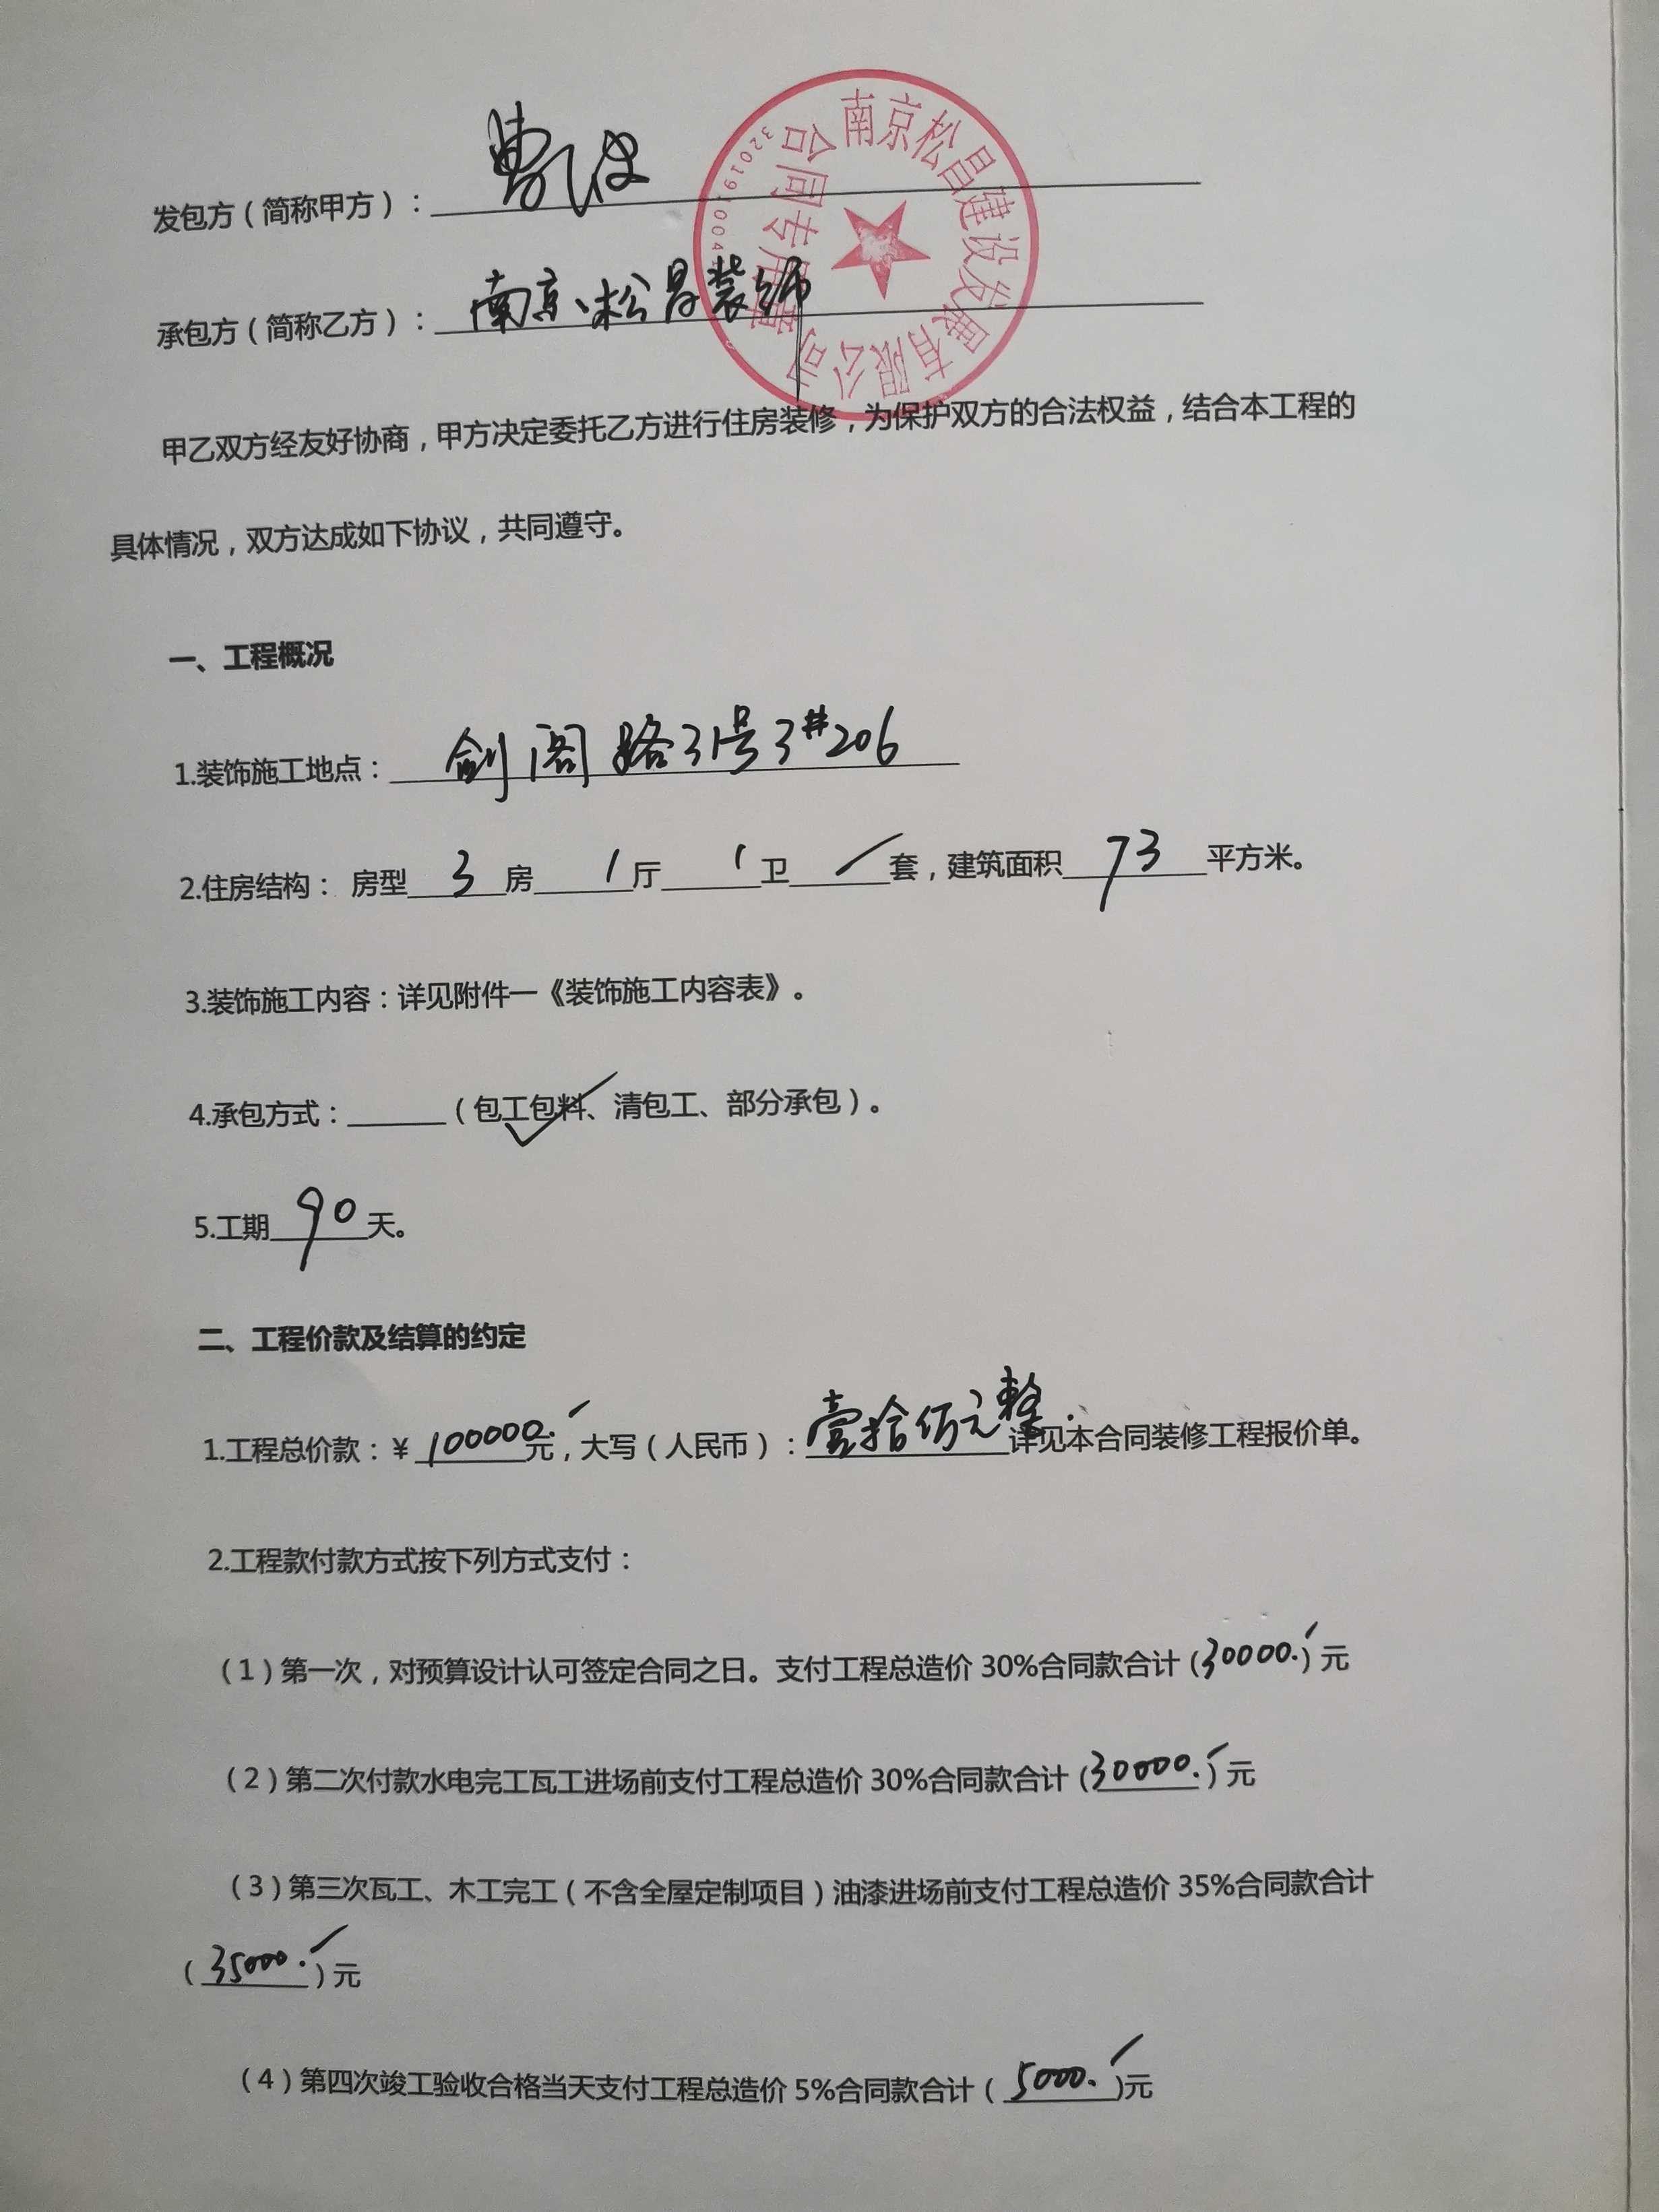 南京松昌建设发展有限公司
合同专用章
发包方（简称甲方）：
承包方（简称乙方）：南京松昌装饰
甲乙双方经友好协商，甲方决定委托乙方进行住房装修，为保护双方的合法权益，结合本工程的
具体情况，双方达成如下协议，共同遵守。
一、工程概况
1.装饰施工地点：剑阁路31号3#206
2.住房结构： 房型3房1厅1卫/套，建筑面积73平方米。
3.装饰施工内容：详见附件一《装饰施工内容表》。
4.承包方式：______（包工包料、清包工、部分承包）。
5.工期90天。
二、工程价款及结算的约定
1.工程总价款：￥100000.元，大写（人民币）：壹拾万元整.详见本合同装修工程报价单。
2.工程款付款方式按下列方式支付：
（1）第一次，对预算设计认可签定合同之日。支付工程总造价 30%合同款合计（30000.）元
（2）第二次付款水电完工瓦工进场前支付工程总造价 30%合同款合计（30000.）元
（3）第三次瓦工、木工完工（不含全屋定制项目）油漆进场前支付工程总造价 35%合同款合计
（35000.）元
（4）第四次竣工验收合格当天支付工程总造价 5%合同款合计（5000.）元